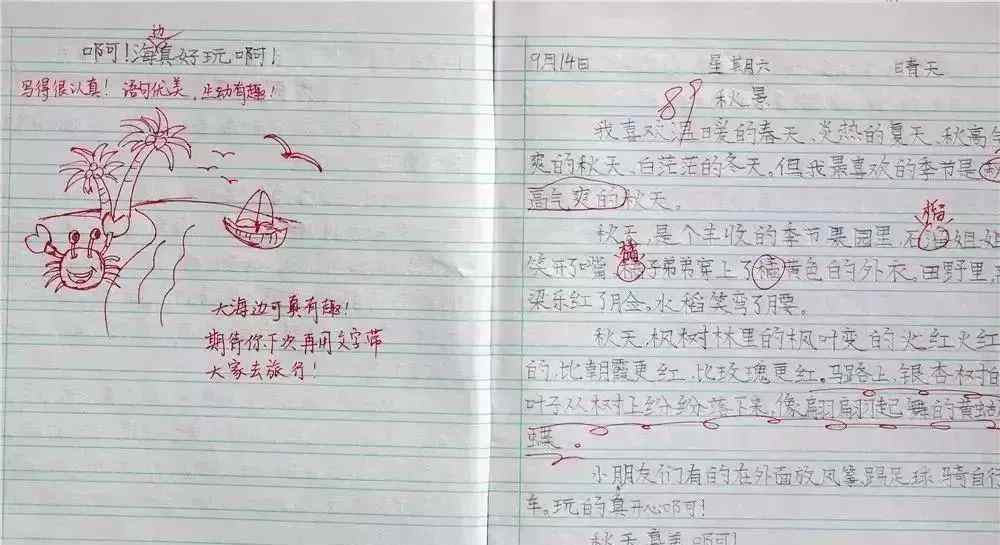 边
啊可!海真好玩啊可!
写得很认真!语句优美,生动有趣!
大海边可真有趣!
期待你下次再用文字带
大家去旅行!
9月14日 星期六 晴天
89
秋景
我喜欢温暖的春天、炎热的夏天、秋高气
爽的秋天、白茫茫的冬天。但我最喜欢的季节是秋
高气爽的秋天。
榴
秋天,是个丰收的季节果园里,石姐姐
橘
笑开了嘴 子弟弟穿上了橘黄色的外衣。田野里,
梁乐红了脸。水稻笑弯了腰。
秋天,枫树林里的枫叶变的火红火红
的,比朝霞更红,比玫瑰更红。马路上,银杏树的
叶子从树上纷纷落下来,像翩翩起舞的黄蝴
蝶。
小朋友们有的在外面放风筝踢足球骑自行
车。玩的真开心啊可!
秋天真美啊可!